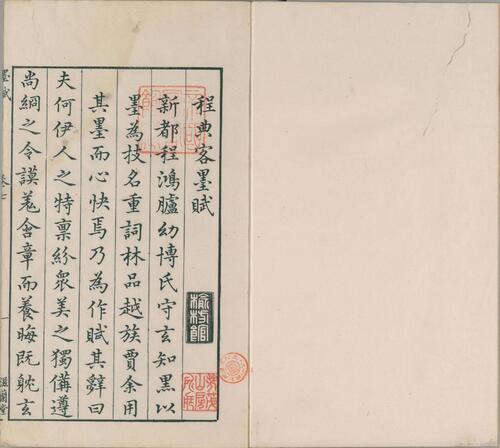 程典客墨賦
新都程鴻臚幼博氏守玄知黑以
墨為技名重詞林品越族賈余用
其墨而心快焉乃為作賦其辭曰
夫何伊人之特稟紛衆美之獨備遵
尚絅之令謨羌含章而養晦既躭玄
墨賦
卷七
一
滋蘭堂